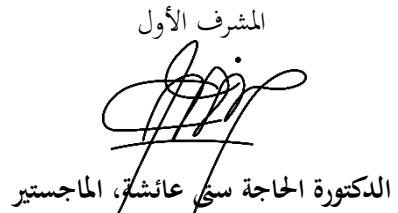 المشرف الأول
الدكتورة الحاجة ستي عائشة، الماجستير